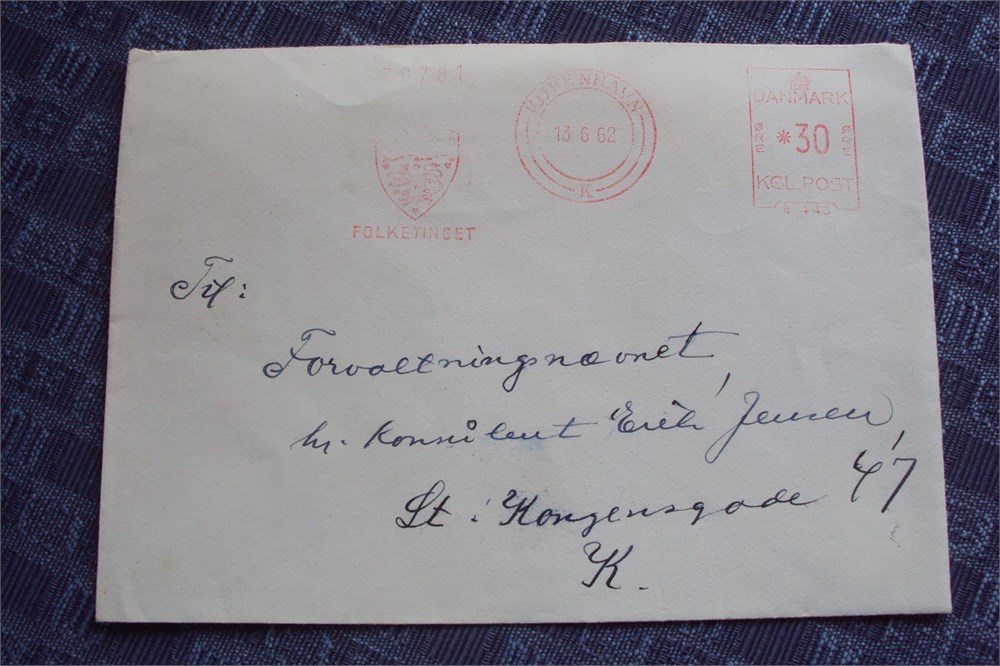 KØBENHAVN
13 6 62
K
DANMARK
ØRE *30 ØRE
KGL. POST
FOLKETINGET
Til:
Forvaltningsnævnet
hr. Konsulent Erik Jensen,
St. Kongensgade 47
K.